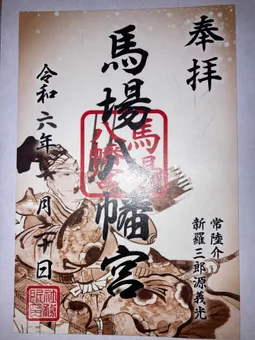 奉拝
常陸介
新羅三郎源義光
馬場八幡宮
令和六年十月二十日